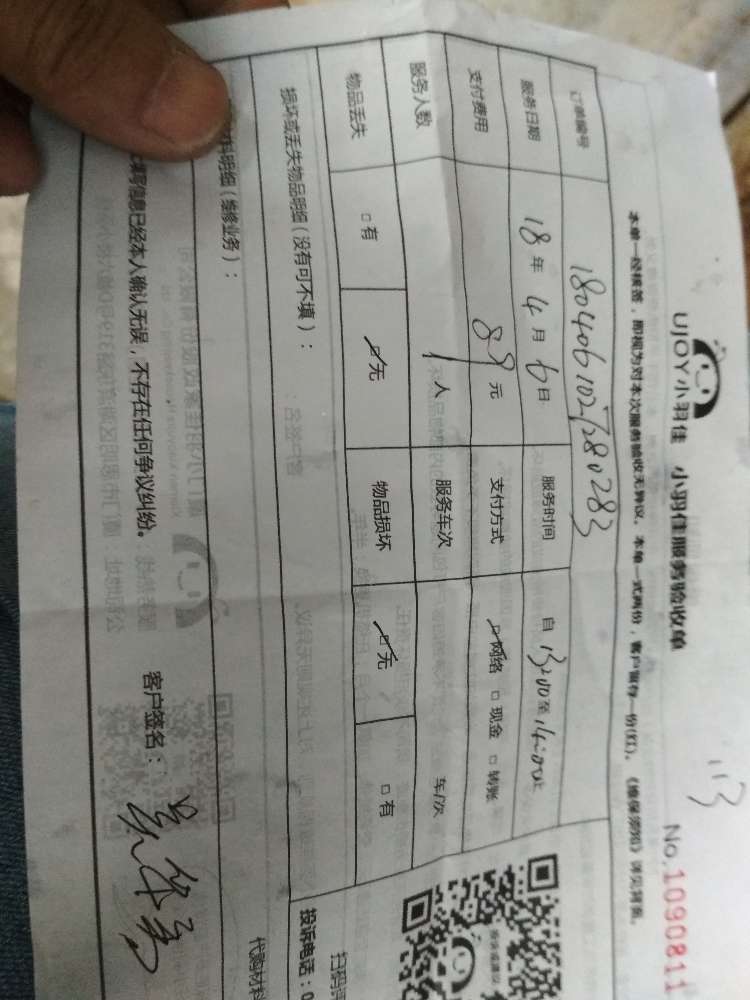 UJOY小羽佳 小羽佳服务验收单
No.1090811
本单一经核签，即视为对本次服务验收无异议。本单一式两份，客户留存一份(红)。《维保须知》详见背面。
订单编号
服务日期 18年4月6日 服务时间 自13:00至14:00止
支付费用 89元 支付方式 网络 □现金 □转账
服务人数 1人 服务车次 车/次
物品丢失 □有 ☑无 物品损坏 ☑无 □有
损坏或丢失物品明细（没有可不填）：
料明细（维修业务）： 代购材料
填写信息已经本人确认无误，不存在任何争议纠纷。 客户签名：
投诉电话：0